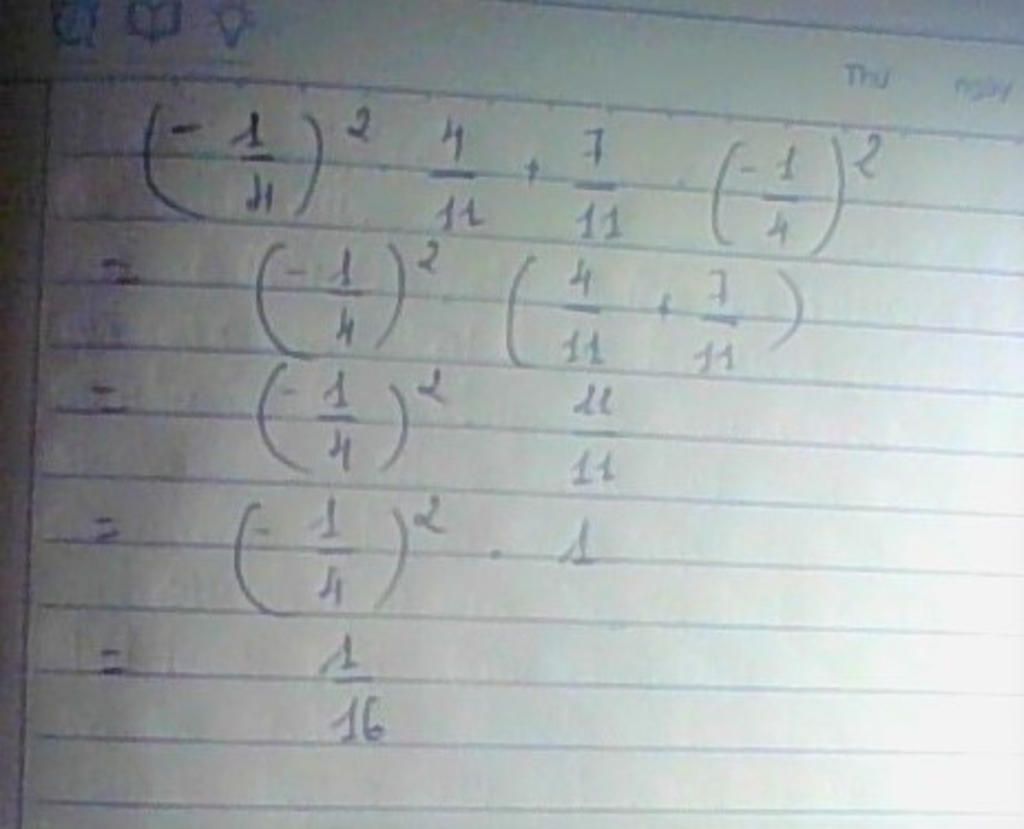 Thứ ngày
(- 1/4)² . 4/11 + 7/11 . (- 1/4)²
= (- 1/4)² . (4/11 + 7/11)
= (- 1/4)² . 11/11
= (- 1/4)² . 1
= 1/16